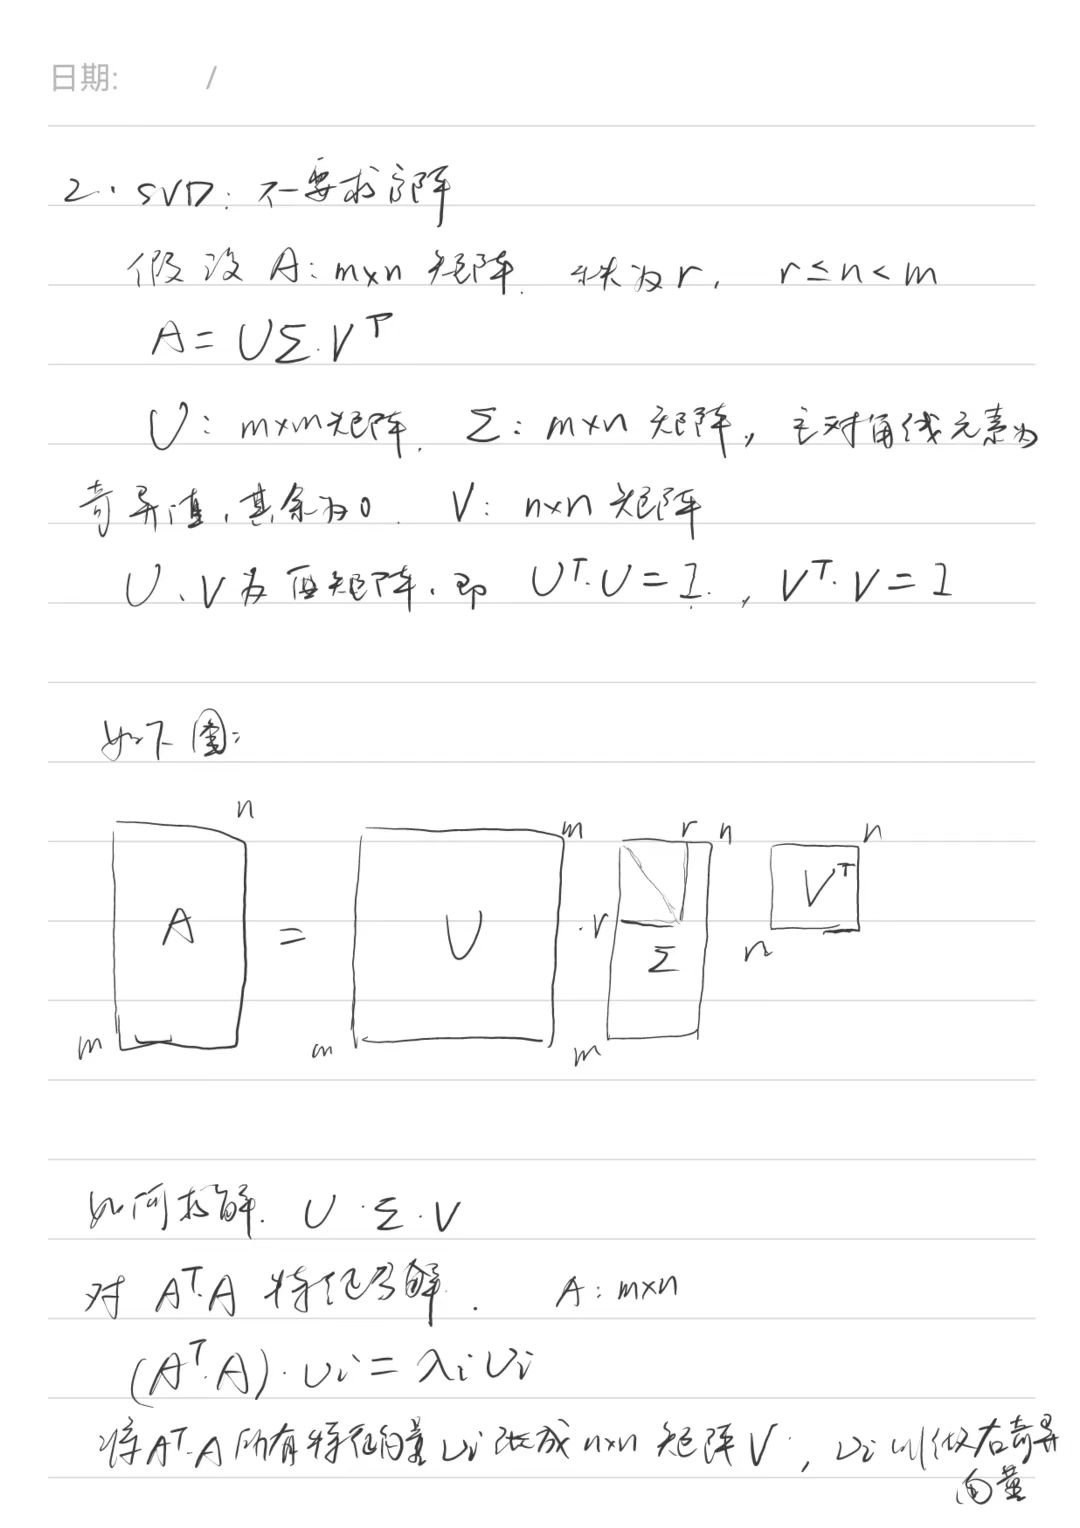 日期: /
2. SVD: 不要求方阵
假设 A: m×n 矩阵. 秩为 r, r≤n<m
A = UΣ·V^T
U: m×m矩阵. Σ: m×n 矩阵, 主对角线元素为
奇异值, 其余为0. V: n×n 矩阵
U、V为酉矩阵, 即 U^T·U=I, V^T·V=I
如下图:
n m r n n
A = U ·r Σ V^T
m m m n
如何求解. U·Σ·V
对 A^T·A 特征分解. A: m×n
(A^T·A)·υi = λiυi
将A^T·A 所有特征向量υi 张成 n×n 矩阵V, υi 叫做右奇异
向量